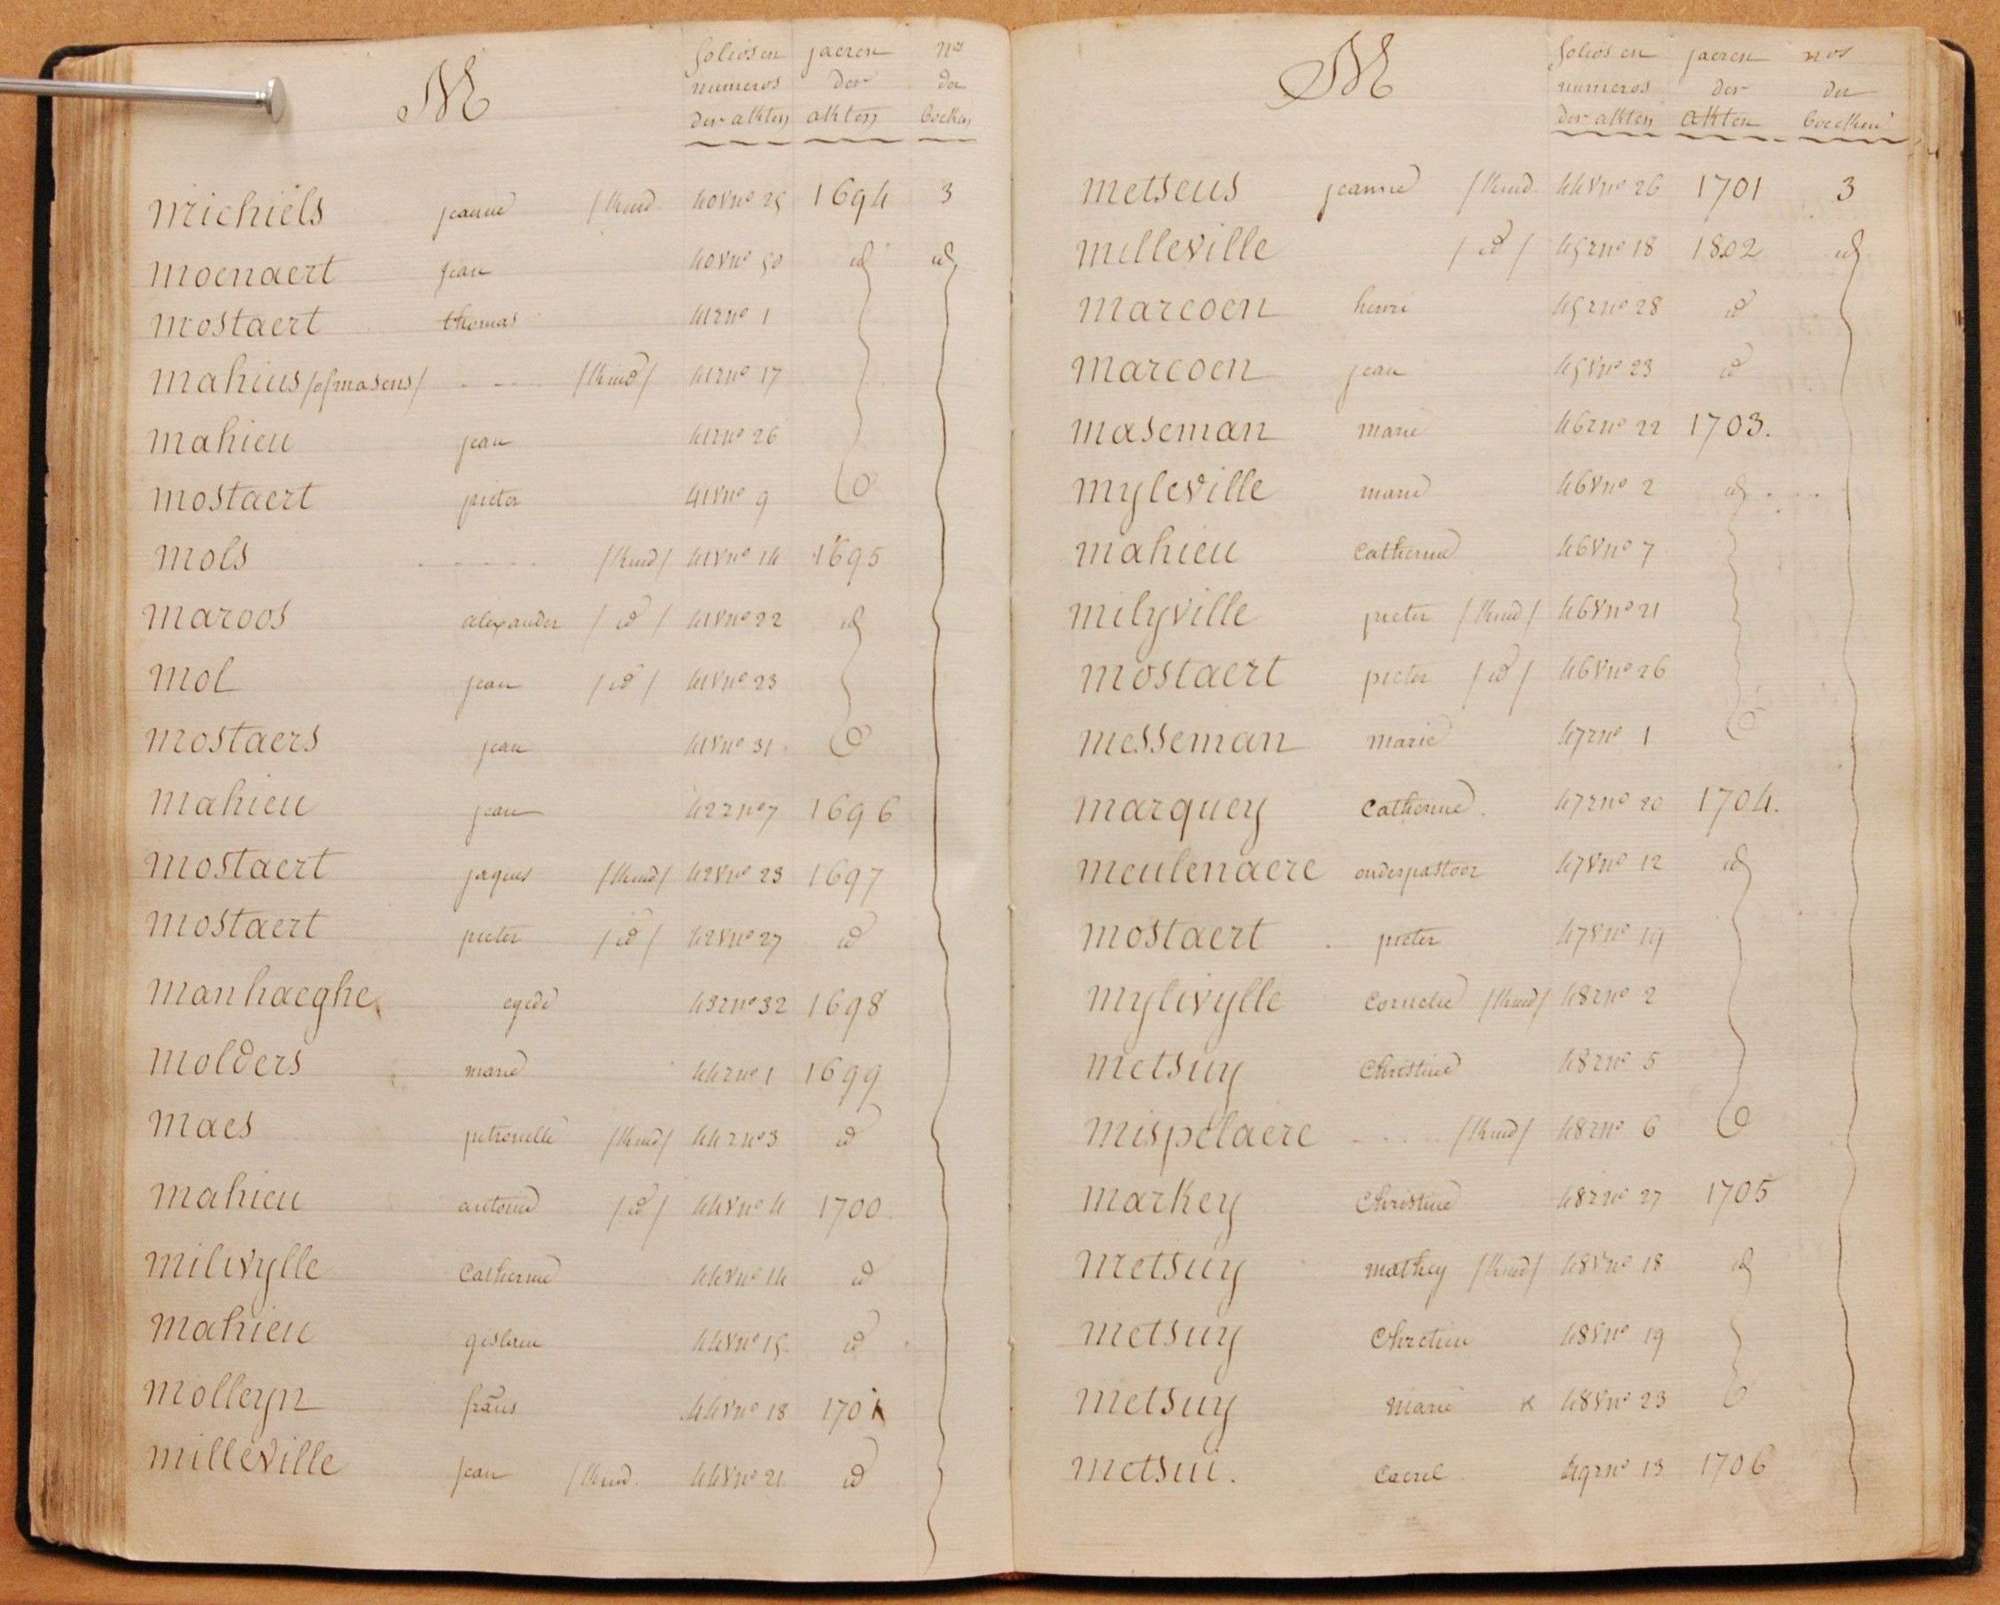 M
folios en jaeren nos
numeros der der
der akten akten boeken
michiels jeanne /kind 40v no 25 1694 3
moenaert jean 40v no 50 id id
mostaert thomas 41r no 1
mahius /of masens/ . - - - /kind/ 41r no 17
mahieu jean 41r no 26
mostaert pieter 41v no 9
mols . . . . . . /kind/ 41v no 14 1695
maroos alexander /id/ 41v no 22 id
mol jean /id/ 41v no 23
mostaers jean 41v no 31
mahieu jean 42r no 7 1696
mostaert jaques /kind/ 42v no 23 1697
mostaert pieter /id/ 42v no 27 id
manhaeghe egide 43r no 32 1698
molders marie 44r no 1 1699
maes petronelle /kind/ 44r no 3 id
mahieu antoine /id/ 44v no 4 1700
milivylle Catherine 44v no 14 id
mahieu gislain 44v no 15 id
molleyn frans 44v no 18 1701
milleville jean /kind. 44v no 21 id
M
folios en jaeren nos
numeros der der
der akten akten boecken
metseus jeanne /kind. 44v no 26 1701 3
milleville /id/ 45r no 18 1802 id
marcoen henri 45r no 28 id
marcoen jean 45v no 23 id
maseman marie 46r no 22 1703.
myleville marie 46v no 2 id . . .
mahieu Catherine 46v no 7
milyville pieter /kind/ 46v no 21
mostaert pieter /id/ 46v no 26
messeman marie 47r no 1
marquey Catherine. 47r no 20 1704.
meulenaere onderpastoor 47v no 12 id
mostaert . pieter 47v no 19
mylivylle Cornelie /kind/ 48r no 2
metsuy Christine 48r no 5
mispelaere - . . . /kind/ 48r no 6
markey Christine 48r no 27 1705
metsuy mathey /kind/ 48v no 18 id
metsuy Chretien 48v no 19
metsuy marie x 48v no 23
metsui. Caerel 49r no 13 1706